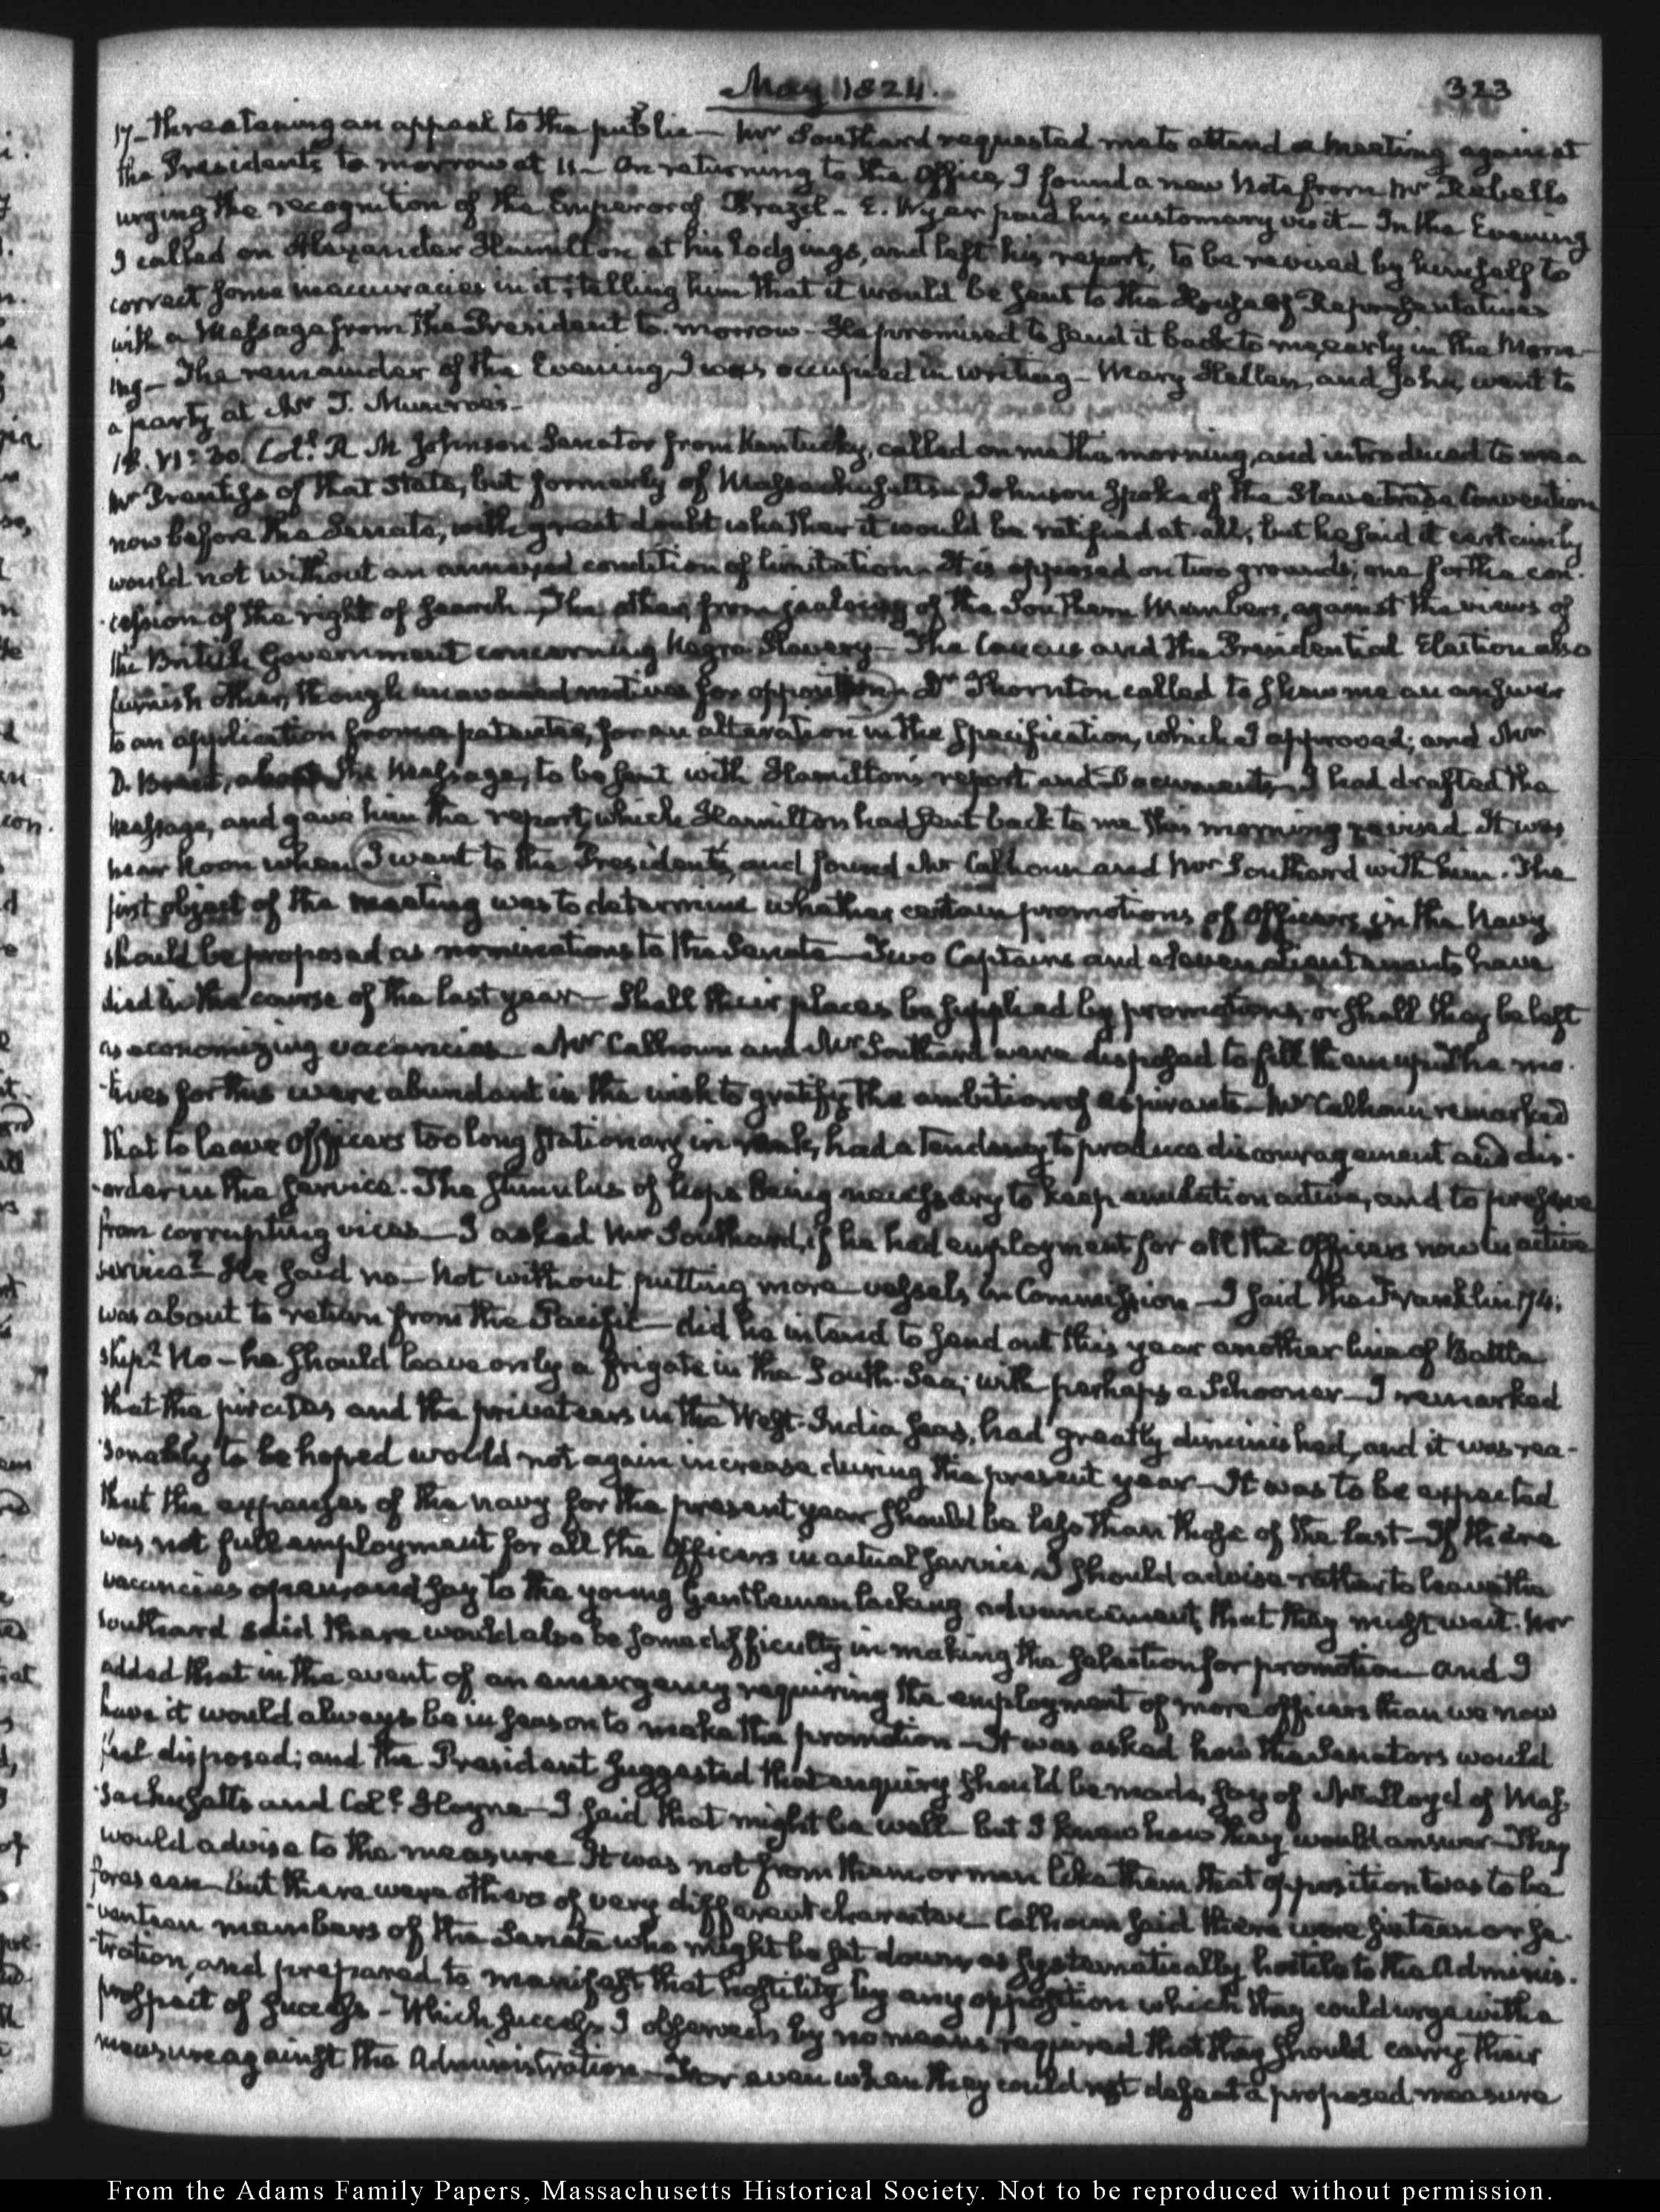 May 1824.
323
17— threatening an appeal to the public— Mr Southard requested me to attend a meeting again at
the President's to morrow at 11— On returning to the Office, I found a new Note from Mr Rebello
urging the recognition of the Emperor of Brazil— E. Wyer paid his customary visit— In the Evening
I called on Alexander Hamilton at his lodgings, and left his report, to be revised by himself to
correct some inaccuracies in it; telling him that it would be sent to the House of Representatives
with a Message from the President to-morrow— He promised to send it back to me early in the Morn-
ing— The remainder of the Evening I was occupied in writing— Mary Hellen, and John, went to
a party at Mr T. Munroe's—
18. VI: 30. Col.l R. M Johnson Senator from Kentucky, called on me this morning, and introduced to me a
Mr Prentiss of that State, but formerly of Massachusetts— Johnson spoke of the Slave trade Convention
now before the Senate, with great doubt whether it would be ratified at all; but he said it certainly
would not without an annexed condition of limitation— It is opposed on two grounds; one for the con-
cession of the right of search— The other, from jealousy of the Southern Members, against the views of
the British Government concerning Negro Slavery— The Caucus and the Presidential Election also
furnish other, though unavowed motives for opposition— Dr Thornton called to shew me an answer
to an application from a patentee, for an alteration in the specification, which I approved; and Mr
D. Brent, about the Message, to be sent with Hamilton's report and Documents— I had drafted the
Message, and gave him the report, which Hamilton had sent back to me this morning revised. It was
near Noon when I went to the President's, and found Mr Calhoun and Mr Southard with him. The
first object of the meeting was to determine whether certain promotions of Officers in the Navy
should be proposed as nominations to the Senate— Two Captains and eleven Lieutenants have
died in the course of the last year— Shall their places be supplied by promotions, or shall they be left
as economizing vacancies— Mr Calhoun and Mr Southard were disposed to fill them up. The mo-
-tives for this were abundant in the wish to gratify the ambition of aspirants— Mr Calhoun remarked
that to leave Officers too long stationary in rank, had a tendency to produce discouragement and dis-
-order in the service. The stimulus of hope being necessary to keep emulation active, and to preserve
from corrupting vices— I asked Mr Southard, if he had employment for all the Officers now in active
service? He said no— Not without putting more vessels in Commission— I said the Franklin 74.
was about to return from the Pacific— did he intend to send out this year another line of Battle
ship? No— he should leave only a frigate in the South-Sea; with perhaps a Schooner— I remarked
that the pirates and the privateers in the West-India seas, had greatly diminished, and it was rea-
-sonably to be hoped would not again increase during the present year— It was to be expected
that the expenses of the navy for the present year should be less than those of the last— If there
was not full employment for all the Officers in actual service, I should advise rather to leave the
vacancies open, and say to the young Gentlemen lacking advancement, that they must wait. Mr
Southard said there would also be some difficulty in making the selection for promotion— and I
added that in the event of an emergency requiring the employment of more officers than we now
have it would always be in season to make the promotion— It was asked how the Senators would
feel disposed; and the President suggested that enquiry should be made, say of Mr Lloyd of Mas-
-sachusetts and Col.l Hayne— I said that might be well— but I knew how they would answer— They
would advise to the measure— It was not from them, or men like them that opposition was to be
foreseen— but there were others of very different character— Calhoun said there were sixteen or se-
-venteen members of the Senate who might be set down as systematically hostile to the Adminis-
-tration, and prepared to manifest that hostility by any opposition which they could urge with a
prospect of success— Which success I observed by no means required that they should carry their
measure against the Administration— For even when they could not defeat a proposed measure
From the Adams Family Papers, Massachusetts Historical Society. Not to be reproduced without permission.